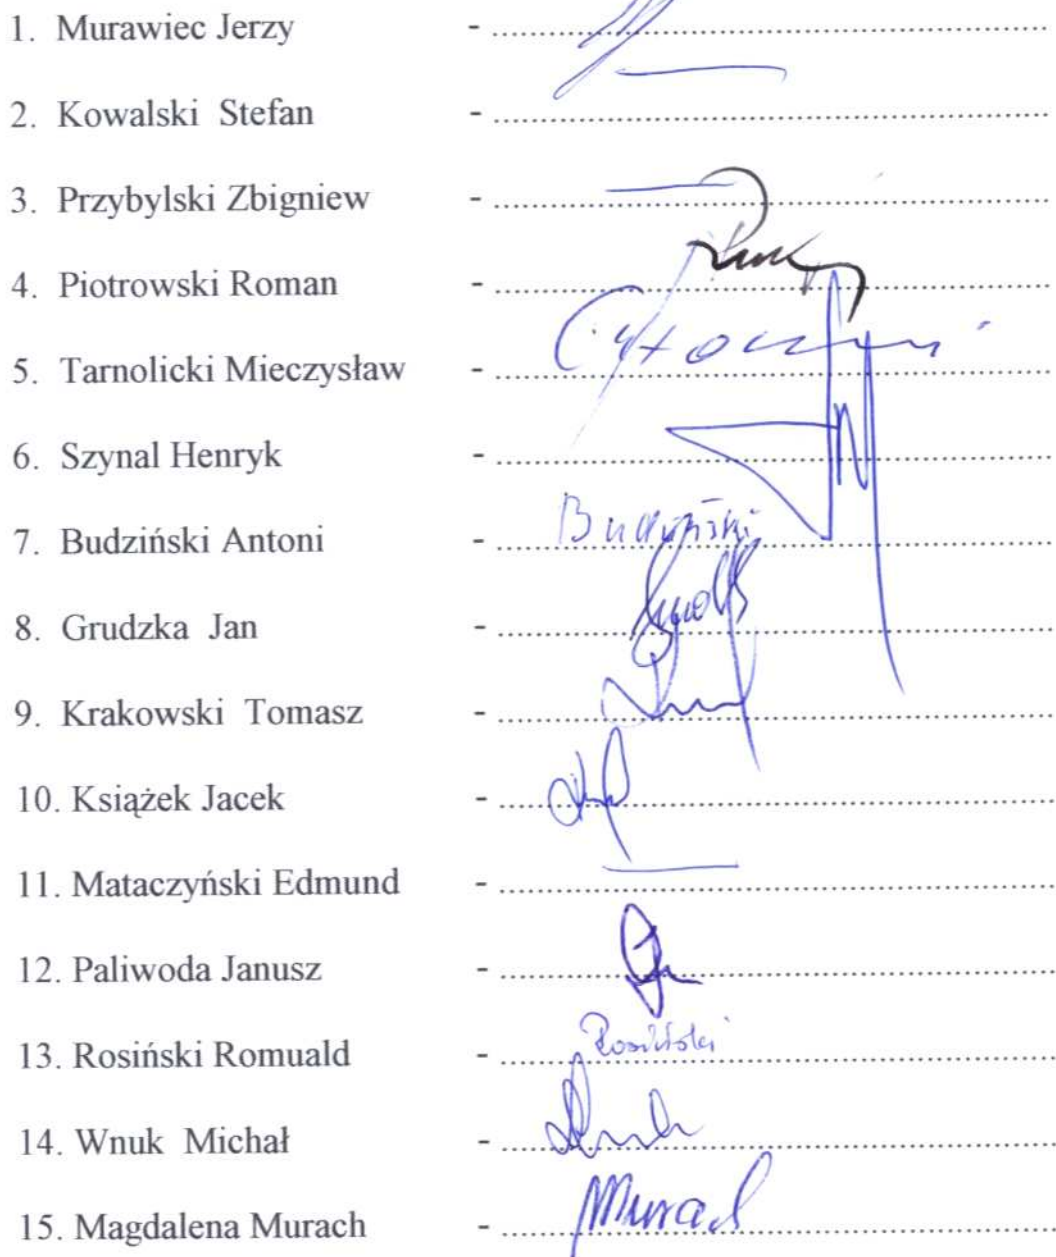 1. Murawiec Jerzy - ..........
2. Kowalski Stefan - ..........
3. Przybylski Zbigniew - ..........
4. Piotrowski Roman - ..........
5. Tarnolicki Mieczysław - ..........
6. Szynal Henryk - ..........
7. Budziński Antoni - .......... Budziński
8. Grudzka Jan - ..........
9. Krakowski Tomasz - ..........
10. Książek Jacek - ..........
11. Mataczyński Edmund - ..........
12. Paliwoda Janusz - ..........
13. Rosiński Romuald - .......... Rosiński
14. Wnuk Michał - ..........
15. Magdalena Murach - .......... Murach